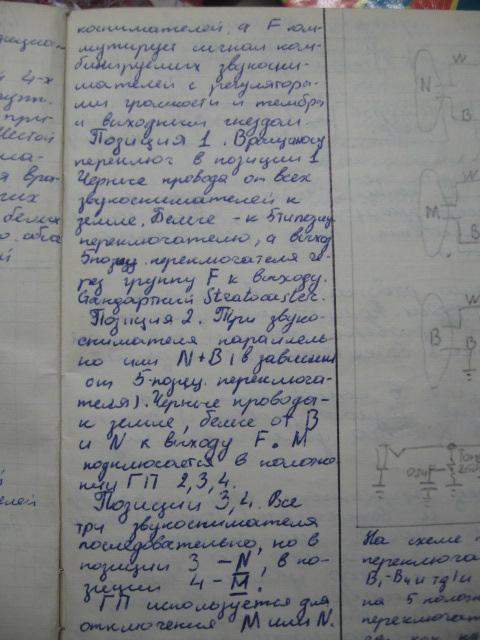 коснимателей, а F ком-
мутирует сигнал ком-
бинируемых звукосни-
мателей с регулятора-
ми громкости и тембра
и выходным гнездом.
Позиция 1. Вращающ
переключ в позиции 1
Черные провода от всех
звукоснимателей к
земле. Белые - к 5типозиц
переключателю, а выход
5позиц. переключателя че-
рез группу F к выходу.
Стандартный Stratocaster.
Позиция 2. Три звуко-
снимателя параллель
но или N+B (в зависим
от 5-позиц. переключа-
теля). Черные провода -
к земле, белые от B
и N к выходу F. M
подключается в положе-
нии ГП 2,3,4.
Позиции 3,4. Все
три звукоснимателя
последовательно, но в
позиции 3 – N, в по-
зиции 4 - M.
ГП используется для
отключения M или N.
4-х
белых
W
N
B
W
M
B
W
B
B
На схеме
переключа
B₁-B₄ и тд) и
на 5 полож
переключат